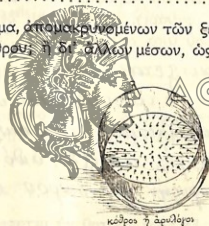 μα, ἀπομακρυνομένων τῶν ξ
θρου; ἢ δι᾽ ἄλλων μέσων, ὡς
κόθρος ἢ ἀρυλόγος